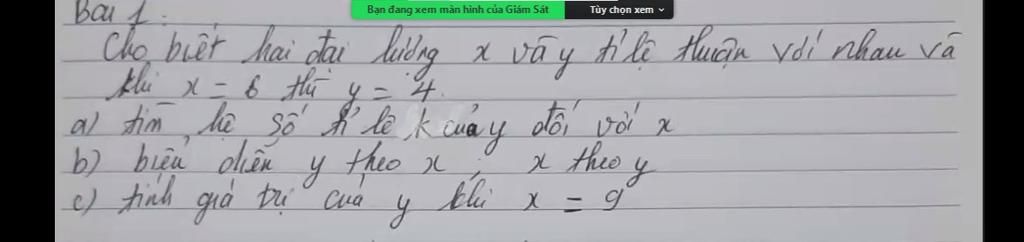 Bạn đang xem màn hình của Giám Sát Tùy chọn xem
Bài 1:
Cho biết hai đại lượng x và y tỉ lệ thuận với nhau và
khi x = 6 thì y = 4.
a) tìm hệ số tỉ lệ k của y đối với x
b) biểu diễn y theo x ; x theo y
c) tính giá trị của y khi x = 9